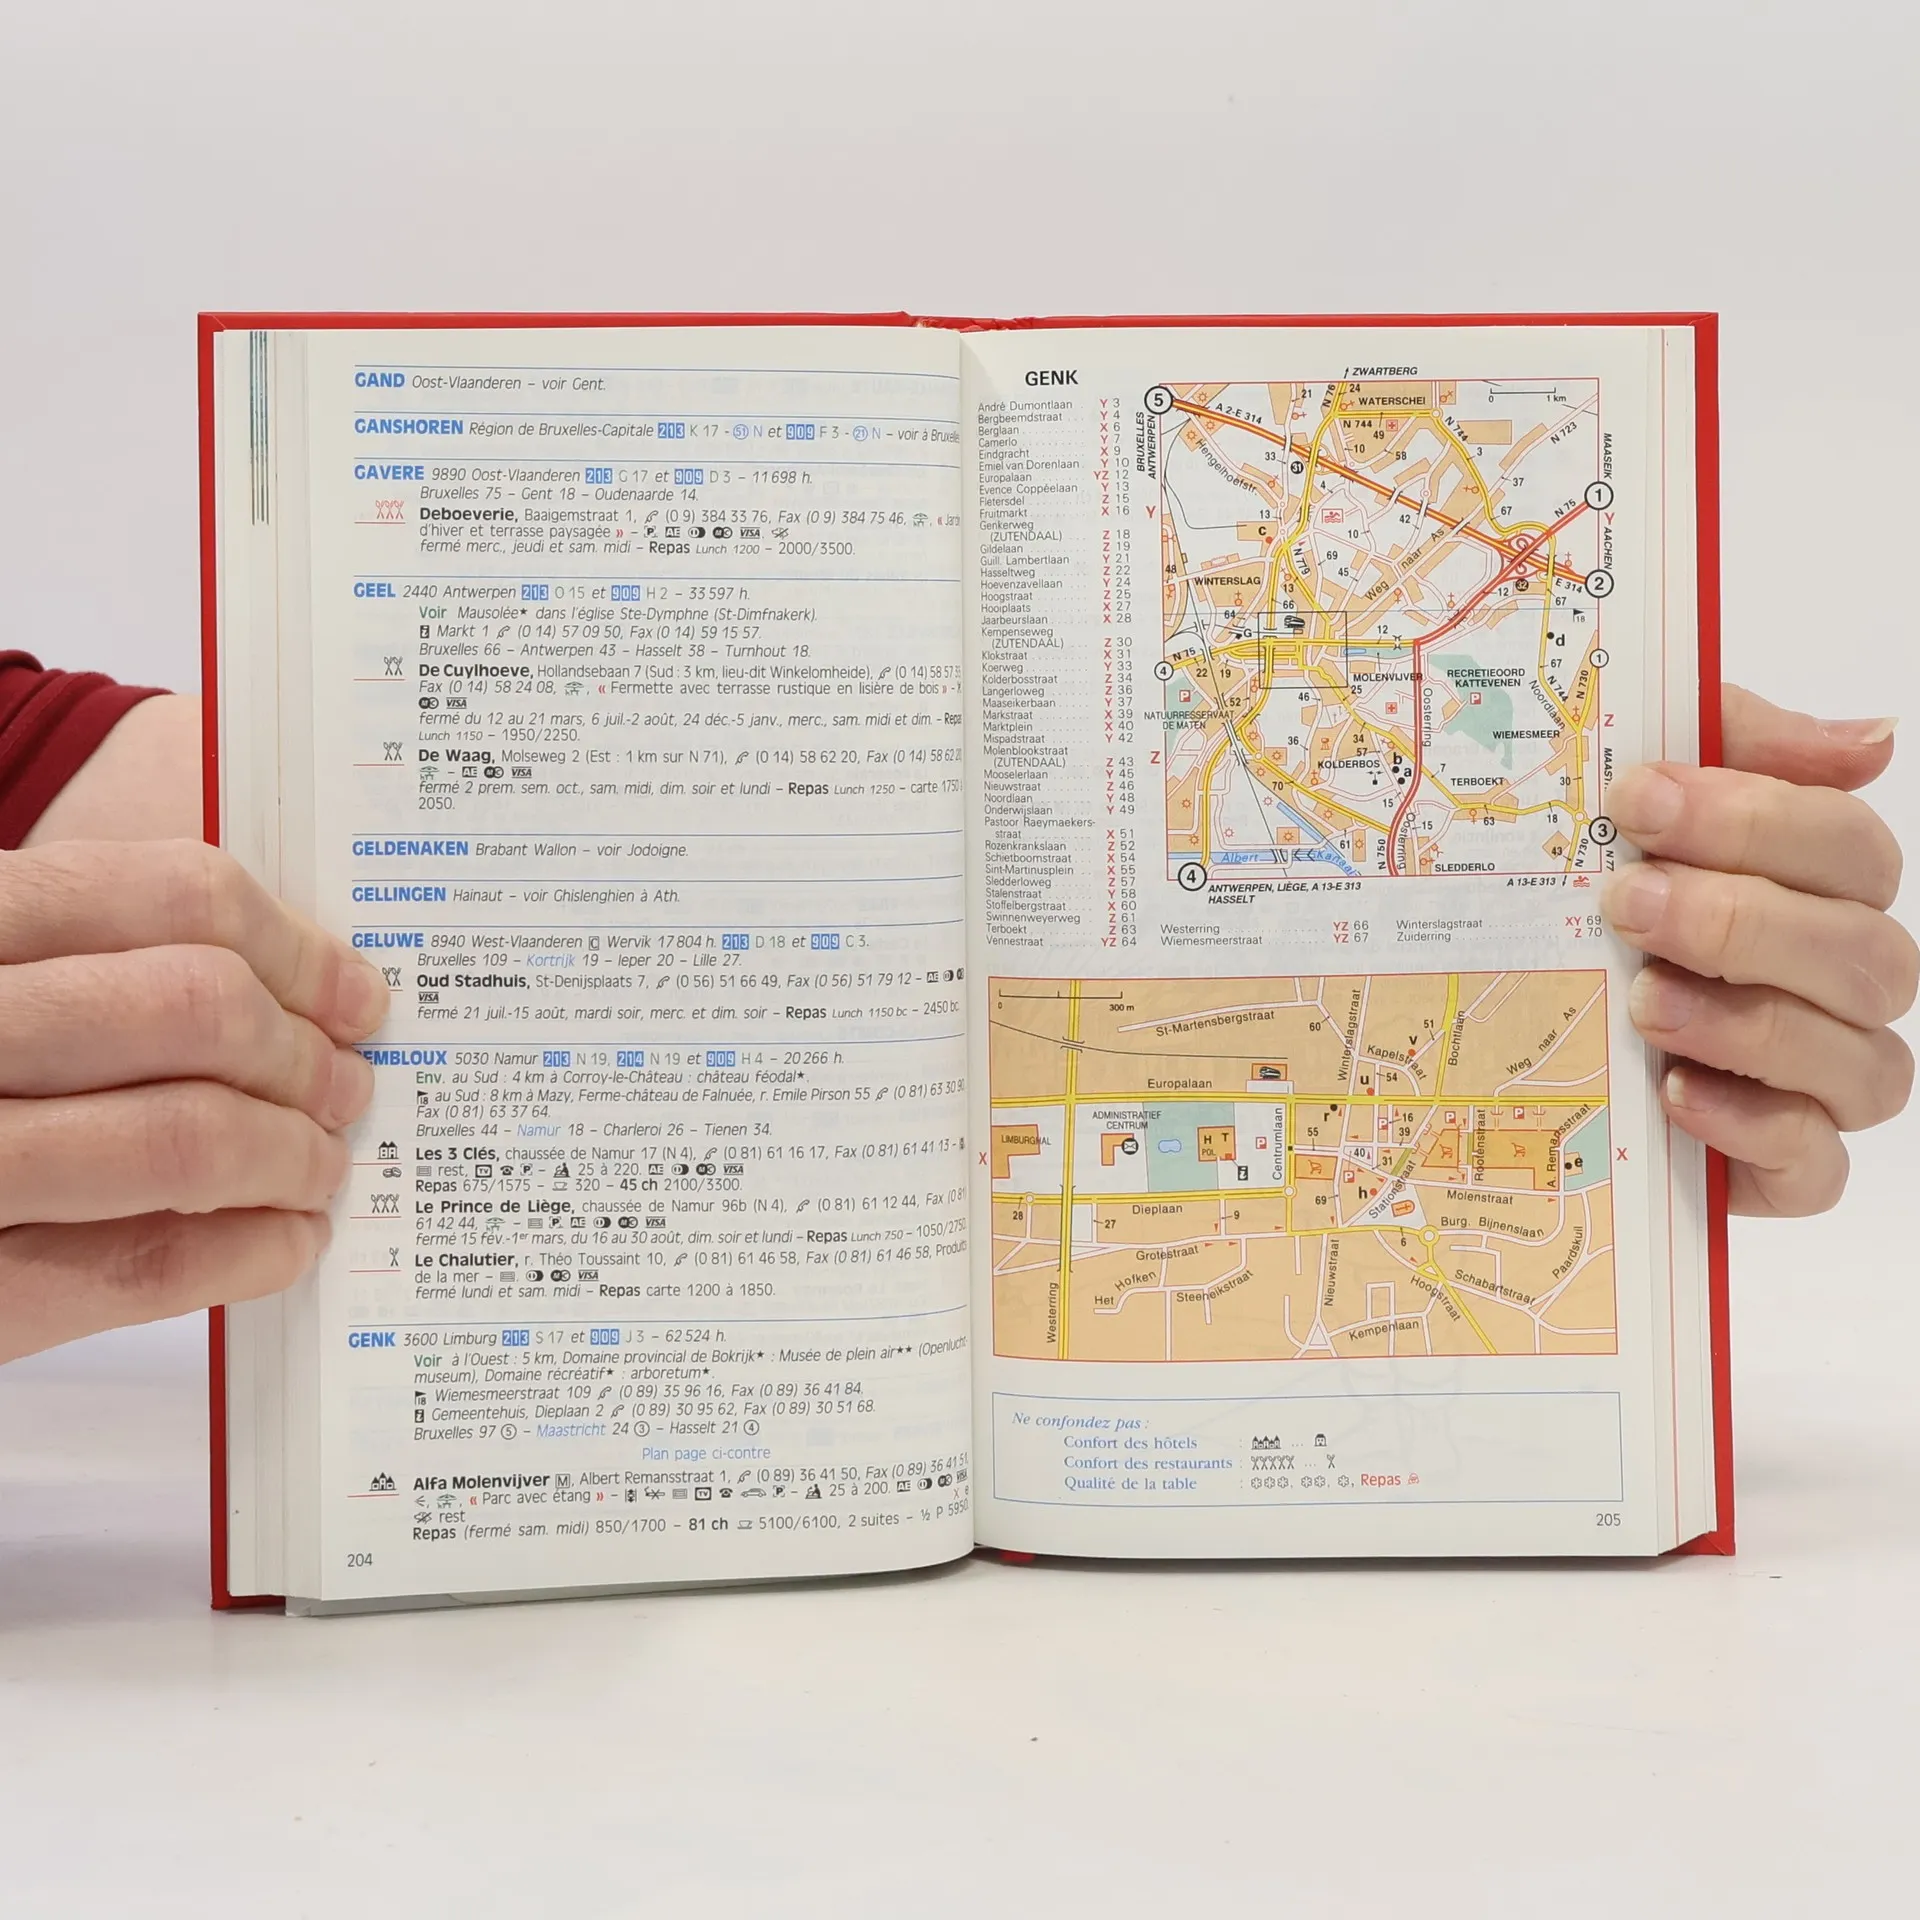 GAND Oost-Vlaanderen – voir Gent.
GANSHOREN Région de Bruxelles-Capitale 213 K 17 - 51 N et 909 F 3 - 21 N – voir à
GAVERE 9890 Oost-Vlaanderen 213 G 17 et 909 D 3 – 11 698 h.
Bruxelles 75 – Gent 18 – Oudenaarde 14.
Deboeverie, Baaigemstraat 1, (0 9) 384 33 76, Fax (0 9) 384 75 46, «
d'hiver et terrasse paysagée » – P. AE VISA
fermé merc., jeudi et sam. midi – Repas Lunch 1200 – 2000/3500.
GEEL 2440 Antwerpen 213 O 15 et 909 H 2 – 33 597 h.
Voir Mausolée★ dans l'église Ste-Dymphne (St-Dimfnakerk).
Markt 1 (0 14) 57 09 50, Fax (0 14) 59 15 57.
Bruxelles 66 – Antwerpen 43 – Hasselt 38 – Turnhout 18.
De Cuylhoeve, Hollandsebaan 7 (Sud : 3 km, lieu-dit Winkelomheide), (0 14) 58 57
Fax (0 14) 58 24 08, « Fermette avec terrasse rustique en lisière de bois » -
VISA
fermé du 12 au 21 mars, 6 juil.-2 août, 24 déc.-5 janv., merc., sam. midi et dim. – Repas
Lunch 1150 – 1950/2250.
De Waag, Molseweg 2 (Est : 1 km sur N 71), (0 14) 58 62 20, Fax (0 14) 58 62 20
– AE VISA
fermé 2 prem. sem. oct., sam. midi, dim. soir et lundi – Repas Lunch 1250 – carte 1750
2050.
GELDENAKEN Brabant Wallon – voir Jodoigne.
GELLINGEN Hainaut – voir Ghislenghien à Ath.
GELUWE 8940 West-Vlaanderen C Wervik 17 804 h. 213 D 18 et 909 C 3.
Bruxelles 109 – Kortrijk 19 – Ieper 20 – Lille 27.
Oud Stadhuis, St-Denijsplaats 7, (0 56) 51 66 49, Fax (0 56) 51 79 12 – AE
VISA
fermé 21 juil.-15 août, mardi soir, merc. et dim. soir – Repas Lunch 1150 bc – 2450 bc.
EMBLOUX 5030 Namur 213 N 19, 214 N 19 et 909 H 4 – 20 266 h.
Env. au Sud : 4 km à Corroy-le-Château : château féodal★.
18 au Sud : 8 km à Mazy, Ferme-château de Falnuée, r. Emile Pirson 55 (0 81) 63 30 90,
Fax (0 81) 63 37 64.
Bruxelles 44 – Namur 18 – Charleroi 26 – Tienen 34.
Les 3 Clés, chaussée de Namur 17 (N 4), (0 81) 61 16 17, Fax (0 81) 61 41 13 –
rest, TV P – 25 à 220. AE VISA
Repas 675/1575 – 320 – 45 ch 2100/3300.
Le Prince de Liège, chaussée de Namur 96b (N 4), (0 81) 61 12 44, Fax (0 81)
61 42 44, – P. AE VISA
fermé 15 fév.-1er mars, du 16 au 30 août, dim. soir et lundi – Repas Lunch 750 – 1050/2750.
Le Chalutier, r. Théo Toussaint 10, (0 81) 61 46 58, Fax (0 81) 61 46 58, Produits
de la mer – VISA
fermé lundi et sam. midi – Repas carte 1200 à 1850.
GENK 3600 Limburg 213 S 17 et 909 J 3 – 62 524 h.
Voir à l'Ouest : 5 km, Domaine provincial de Bokrijk★ : Musée de plein air★★ (Openlucht-
museum), Domaine récréatif★ : arboretum★.
18 Wiemesmeerstraat 109 (0 89) 35 96 16, Fax (0 89) 36 41 84.
Gemeentehuis, Dieplaan 2 (0 89) 30 95 62, Fax (0 89) 30 51 68.
Bruxelles 97 5 – Maastricht 24 3 – Hasselt 21 4
Plan page ci-contre
Alfa Molenvijver M, Albert Remansstraat 1, (0 89) 36 41 50, Fax (0 89) 36 41 51,
« Parc avec étang » – TV P – 25 à 200. AE VISA
rest X e
Repas (fermé sam. midi) 850/1700 – 81 ch 5100/6100, 2 suites – ½ P 5950.
204
GENK
André Dumontlaan Y 3
Bergbeemdstraat Y 4
Berglaan X 6
Camerlo Y 7
Eindgracht X 9
Emiel van Dorenlaan Y 10
Europalaan YZ 12
Evence Coppéelaan Y 13
Fletersdel Z 15
Fruitmarkt X 16
Genkerweg
(ZUTENDAAL) Z 18
Gildelaan Z 19
Guill. Lambertlaan Y 21
Hasseltweg Z 22
Hoevenzavellaan Y 24
Hoogstraat Z 25
Hooiplaats X 27
Jaarbeurslaan X 28
Kempenseweg
(ZUTENDAAL) Z 30
Klokstraat X 31
Koerweg Y 33
Kolderbosstraat Z 34
Langerloweg Z 36
Maaseikerbaan Y 37
Markstraat X 39
Marktplein X 40
Mispadstraat Y 42
Molenblookstraat
(ZUTENDAAL) Z 43
Mooselerlaan Y 45
Nieuwstraat Z 46
Noordlaan Y 48
Onderwijslaan Y 49
Pastoor Raeymaekers-
straat X 51
Rozenkranslaan Z 52
Schietboomstraat X 54
Sint-Martinusplein X 55
Sledderloweg Z 57
Stalenstraat Y 58
Stoffelbergstraat X 60
Swinnenweyerweg Z 61
Terboekt Z 63
Vennestraat YZ 64
Westerring YZ 66
Wiemesmeerstraat YZ 67
Winterslagstraat XY 69
Zuiderring Z 70
ZWARTBERG
BRUXELLES
ANTWERPEN
A 2-E 314
N 76
WATERSCHEI
N 744
N 744
N 723
0 1 km
MAASEIK
N 75
AACHEN
E 314
Hengelhoefstr.
WINTERSLAG
N 779
Weg naar As
N 75
MOLENVIJVER
RECRETIEOORD
KATTEVENEN
NATUURRESERVAAT
DE MATEN
Oosterring
Noordlaan
N 744
N 330
WIEMESMEER
KOLDERBOS
TERBOEKT
Albert Kanaal
N 750
Oosterring
SLEDDERLO
N 730
N 77
ANTWERPEN, LIÈGE, A 13-E 313
HASSELT
A 13-E 313
0 300 m
St-Martensbergstraat
Winterslagstraat
Kapelstraat
Bochtlaan
Weg naar As
Europalaan
ADMINISTRATIEF
CENTRUM
LIMBURGHAL
H T
POL.
Centrumlaan
Stationsstraat
Rootenstraat
A. Remansstraat
Molenstraat
Dieplaan
Burg. Bijnenslaan
Grotestraat
Het Hofken
Steeneikstraat
Nieuwstraat
Hoogstraat
Schabartstraat
Paardskuil
Westerring
Kempenlaan
Ne confondez pas :
Confort des hôtels : ...
Confort des restaurants : ...
Qualité de la table : ✿✿✿, ✿✿, ✿, Repas
205